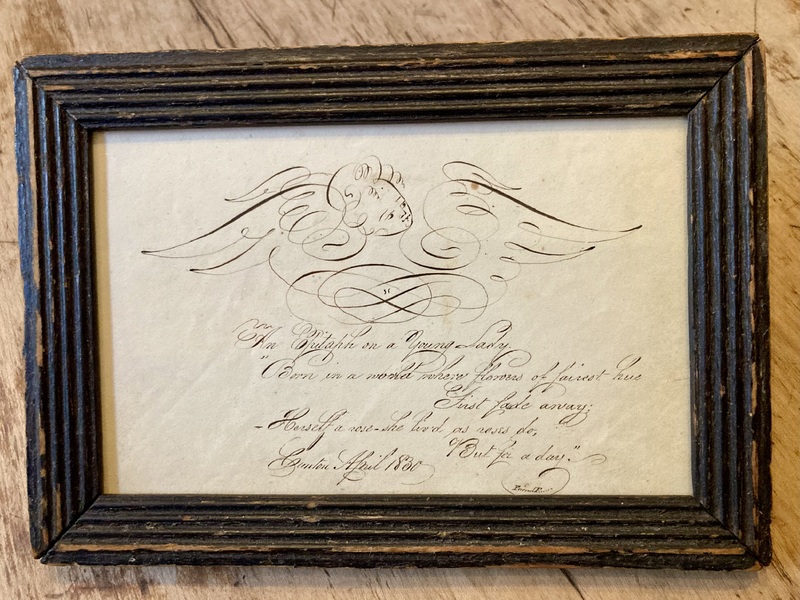 An Epitaph on a Young Lady.
"Born in a world where flowers of fairest hue
First fade away;
- Herself a rose - she liv'd as roses do,
"But for a day."
April 1830